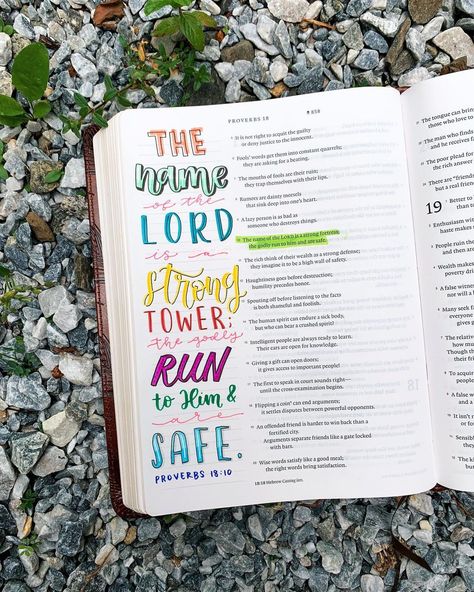 PROVERBS 18
850
THE
name
of the
LORD
is a
strong
TOWER;
the godly
RUN
to Him &
are
SAFE.
PROVERBS 18:10
5 It is not right to acquit the guilty
or deny justice to the innocent.
6 Fools' words get them into constant quarrels;
they are asking for a beating.
7 The mouths of fools are their ruin;
they trap themselves with their lips.
8 Rumors are dainty morsels
that sink deep into one's heart.
9 A lazy person is as bad as
someone who destroys things.
10 The name of the LORD is a strong fortress;
the godly run to him and are safe.
11 The rich think of their wealth as a strong defense;
they imagine it to be a high wall of safety.
12 Haughtiness goes before destruction;
humility precedes honor.
13 Spouting off before listening to the facts
is both shameful and foolish.
14 The human spirit can endure a sick body,
but who can bear a crushed spirit?
15 Intelligent people are always ready to learn.
Their ears are open for knowledge.
16 Giving a gift can open doors;
it gives access to important people!
17 The first to speak in court sounds right—
until the cross-examination begins.
18 Flipping a coin* can end arguments;
it settles disputes between powerful opponents.
19 An offended friend is harder to win back than a
fortified city.
Arguments separate friends like a gate locked
with bars.
20 Wise words satisfy like a good meal;
the right words bring satisfaction.
18:18 Hebrew Casting lots.
The tongue can bring
those who love to
The man who finds
and he receives
The poor plead for
the rich answer
There are "friends"
but a real friend
19 Better to
than to
Enthusiasm with
haste makes
People ruin their
and then are
Wealth makes
poverty drives
A false witness
nor will a
Many seek favors
everyone is
The relatives
how much
Though the
their friends